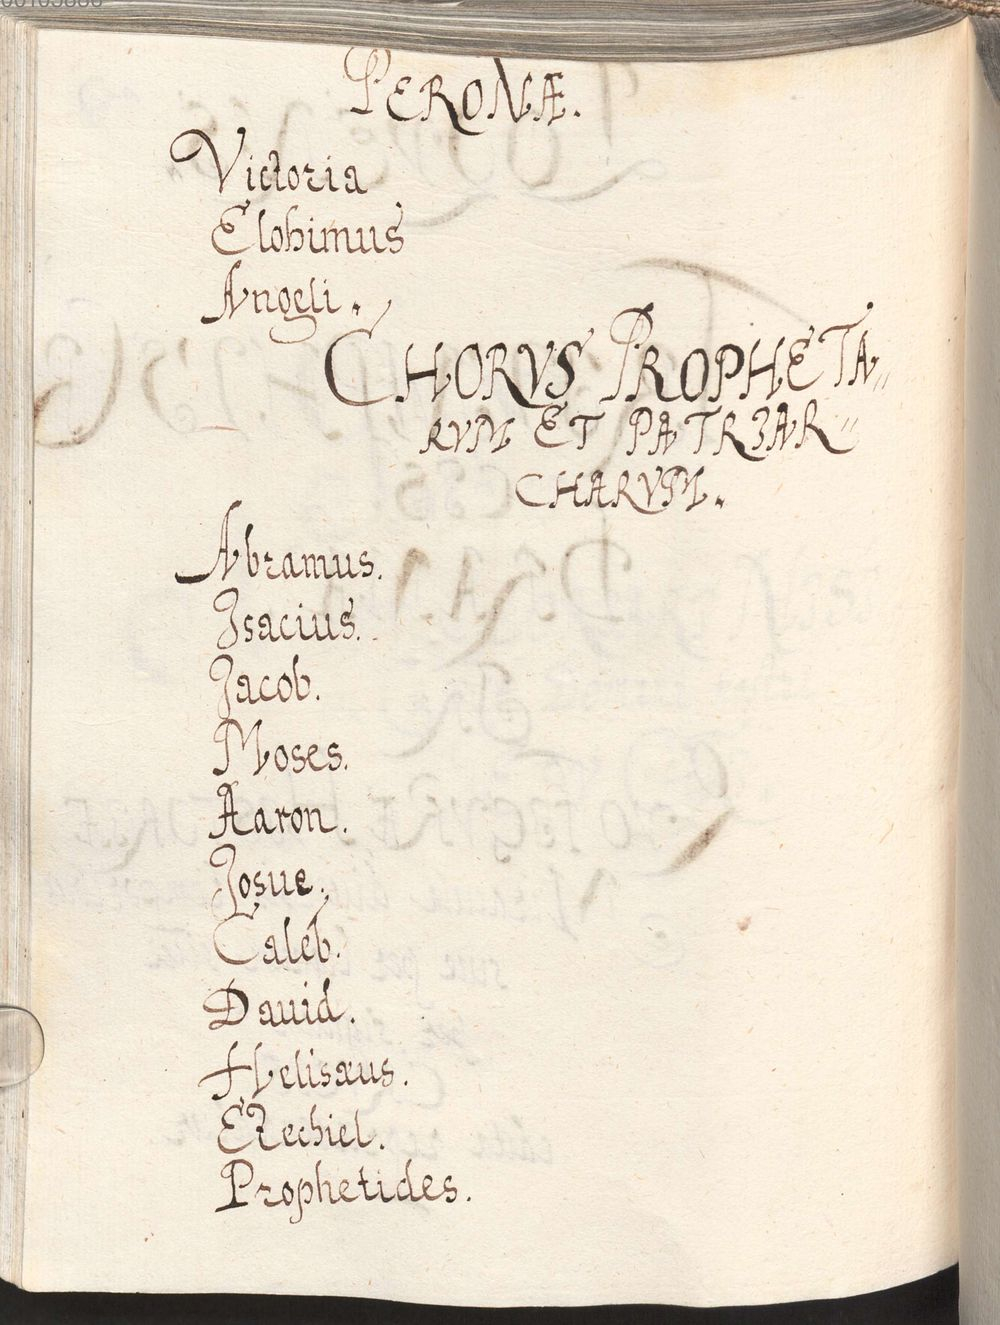 PERONÆ.
Victoria
Elohimus
Angeli.
CHORVS PROPHETA=
RVM ET PATRIAR=
CHARVM.
Abramus.
Isacius.
Jacob.
Moses.
Aaron.
Josue.
Caleb.
Dauid.
Helisæus.
Ezechiel.
Prophetides.